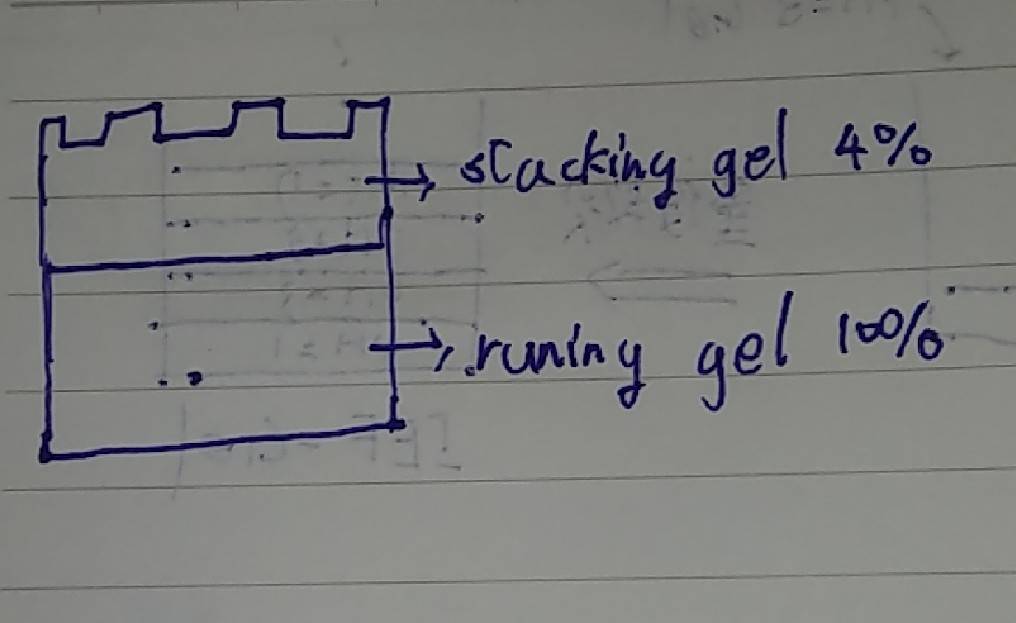 stacking gel 4%
runing gel 100%